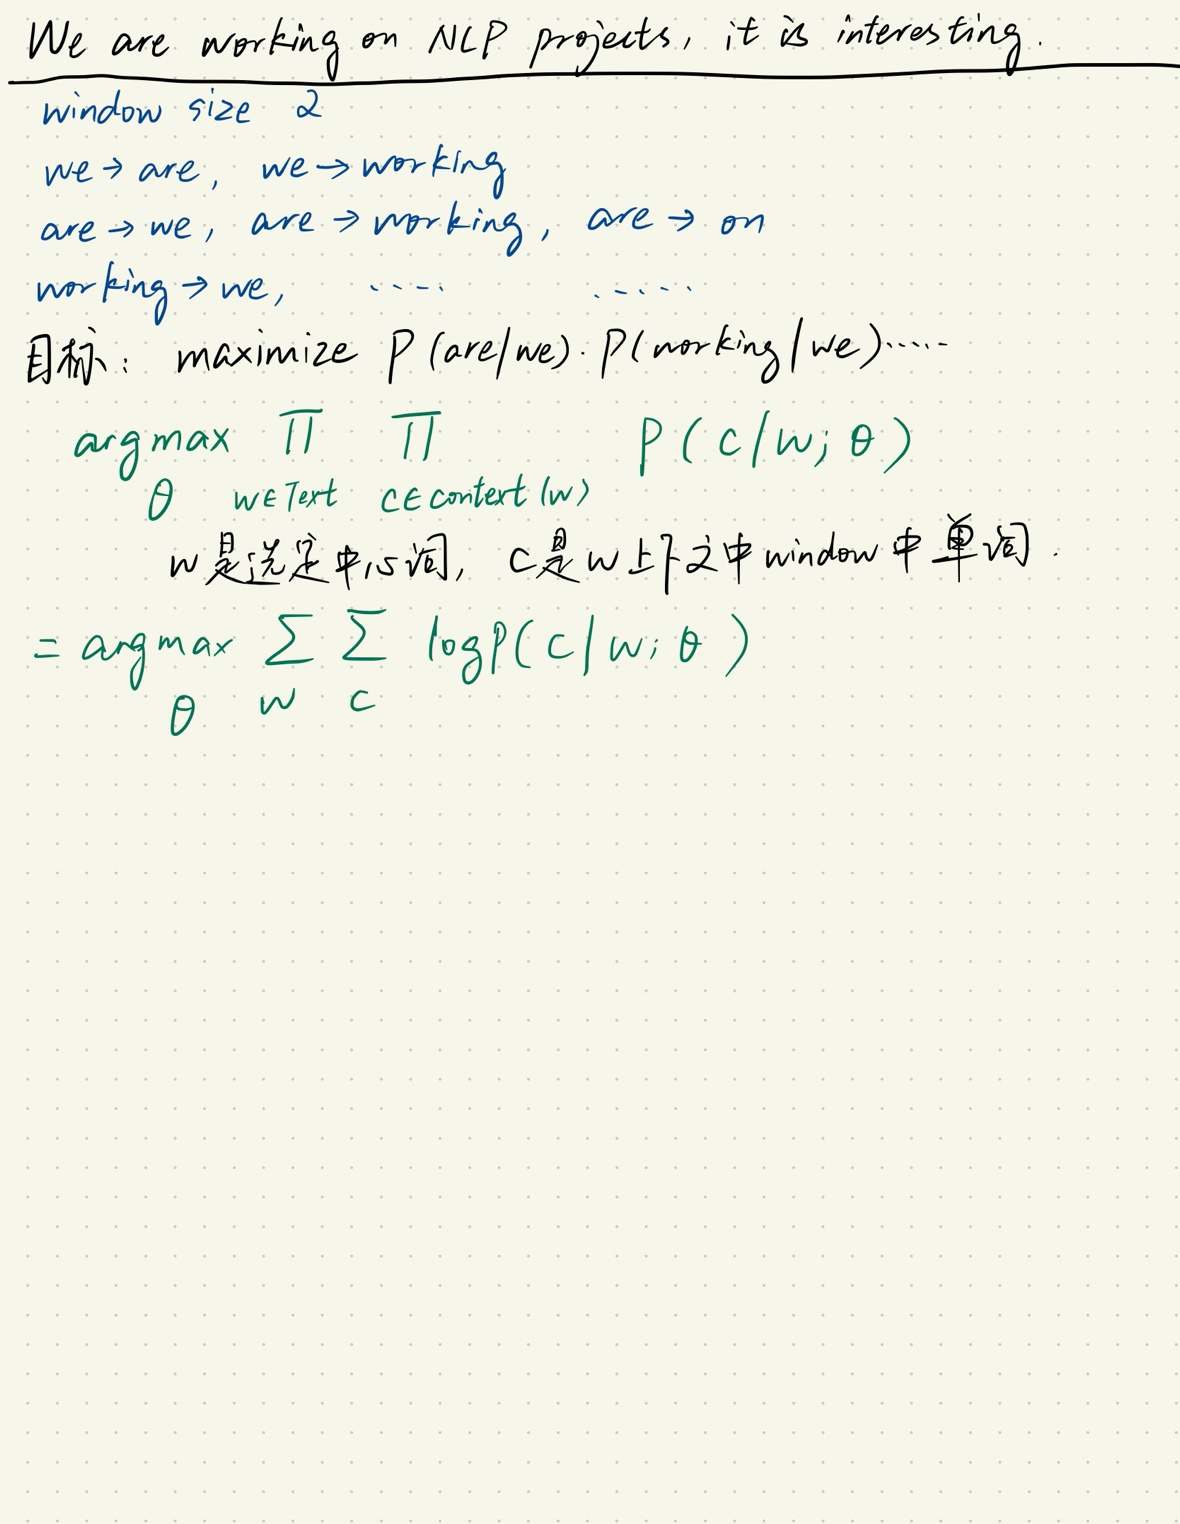 We are working on NLP projects, it is interesting.
window size 2
we → are, we → working
are → we, are → working, are → on
working → we, ···· ·····
目标: maximize P(are/we)· P(working/we)·····
argmax ∏ ∏ P(c/w; θ)
θ w∈Text c∈context(w)
w是选定中心词, c是w上下文中window中单词.
= argmax Σ Σ logP(c|w; θ)
θ w c